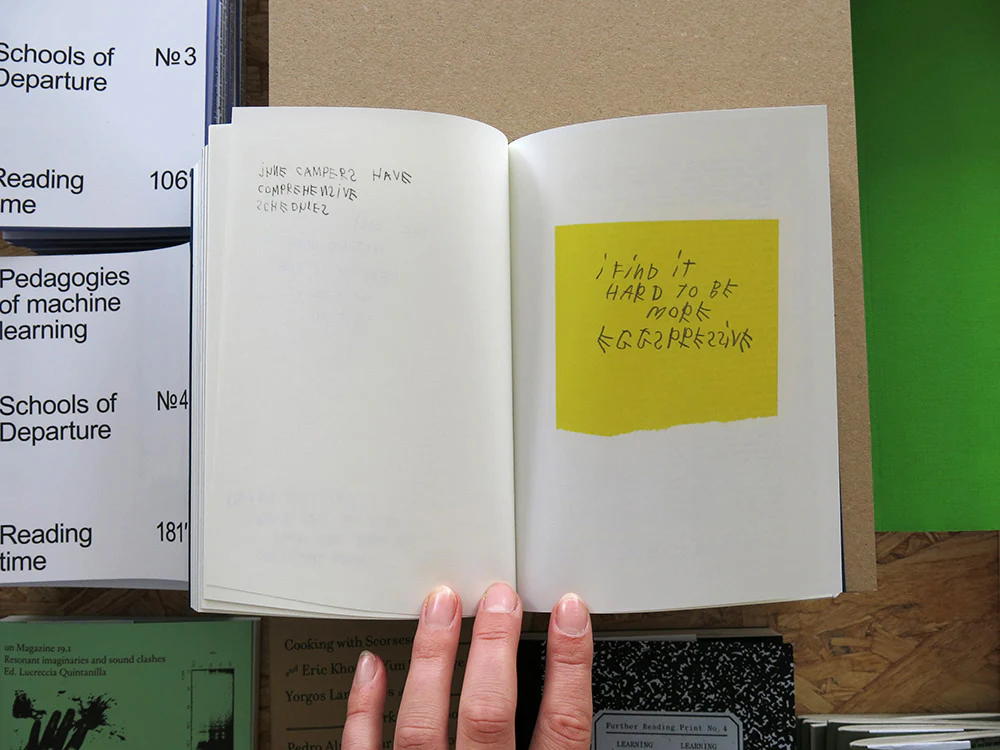 Schools of
Departure
№3
Reading
me
106
Pedagogies
of machine
learning
Schools of
Departure
№4
Reading
time
181'
JUNE CAMPERS HAVE
COMPREHENSIVE
SCHEDULES
i FiND iT
HARD TO BE
MORE
EGGSPRESSiVE
un Magazine 19.1
Resonant imaginaries and sound clashes
Ed. Lucreccia Quintanilla
Cooking with Scorsese
and Eric Kho
Yorgos Lan
Pedro Al
Further Reading Print No. 4
LEARNING LEARNING